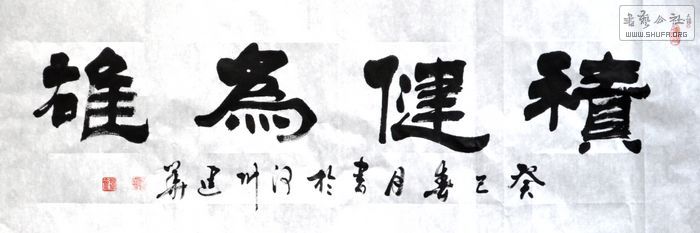 積健為雄
癸巳春月書於州建華
書藝公社
WWW.SHUFA.ORG